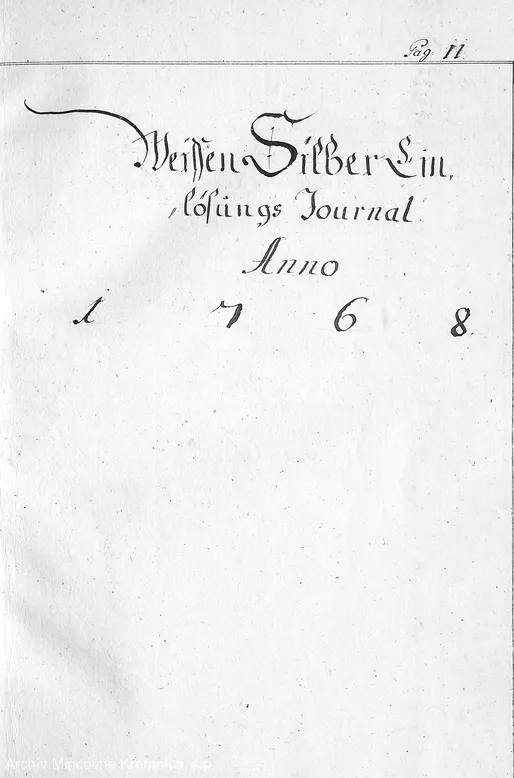 Pag. 11
Weissen Silber Ein,
,lösungs Journal
Anno
1 7 6 8
Archiv Mincovne Kremnica, š.p.